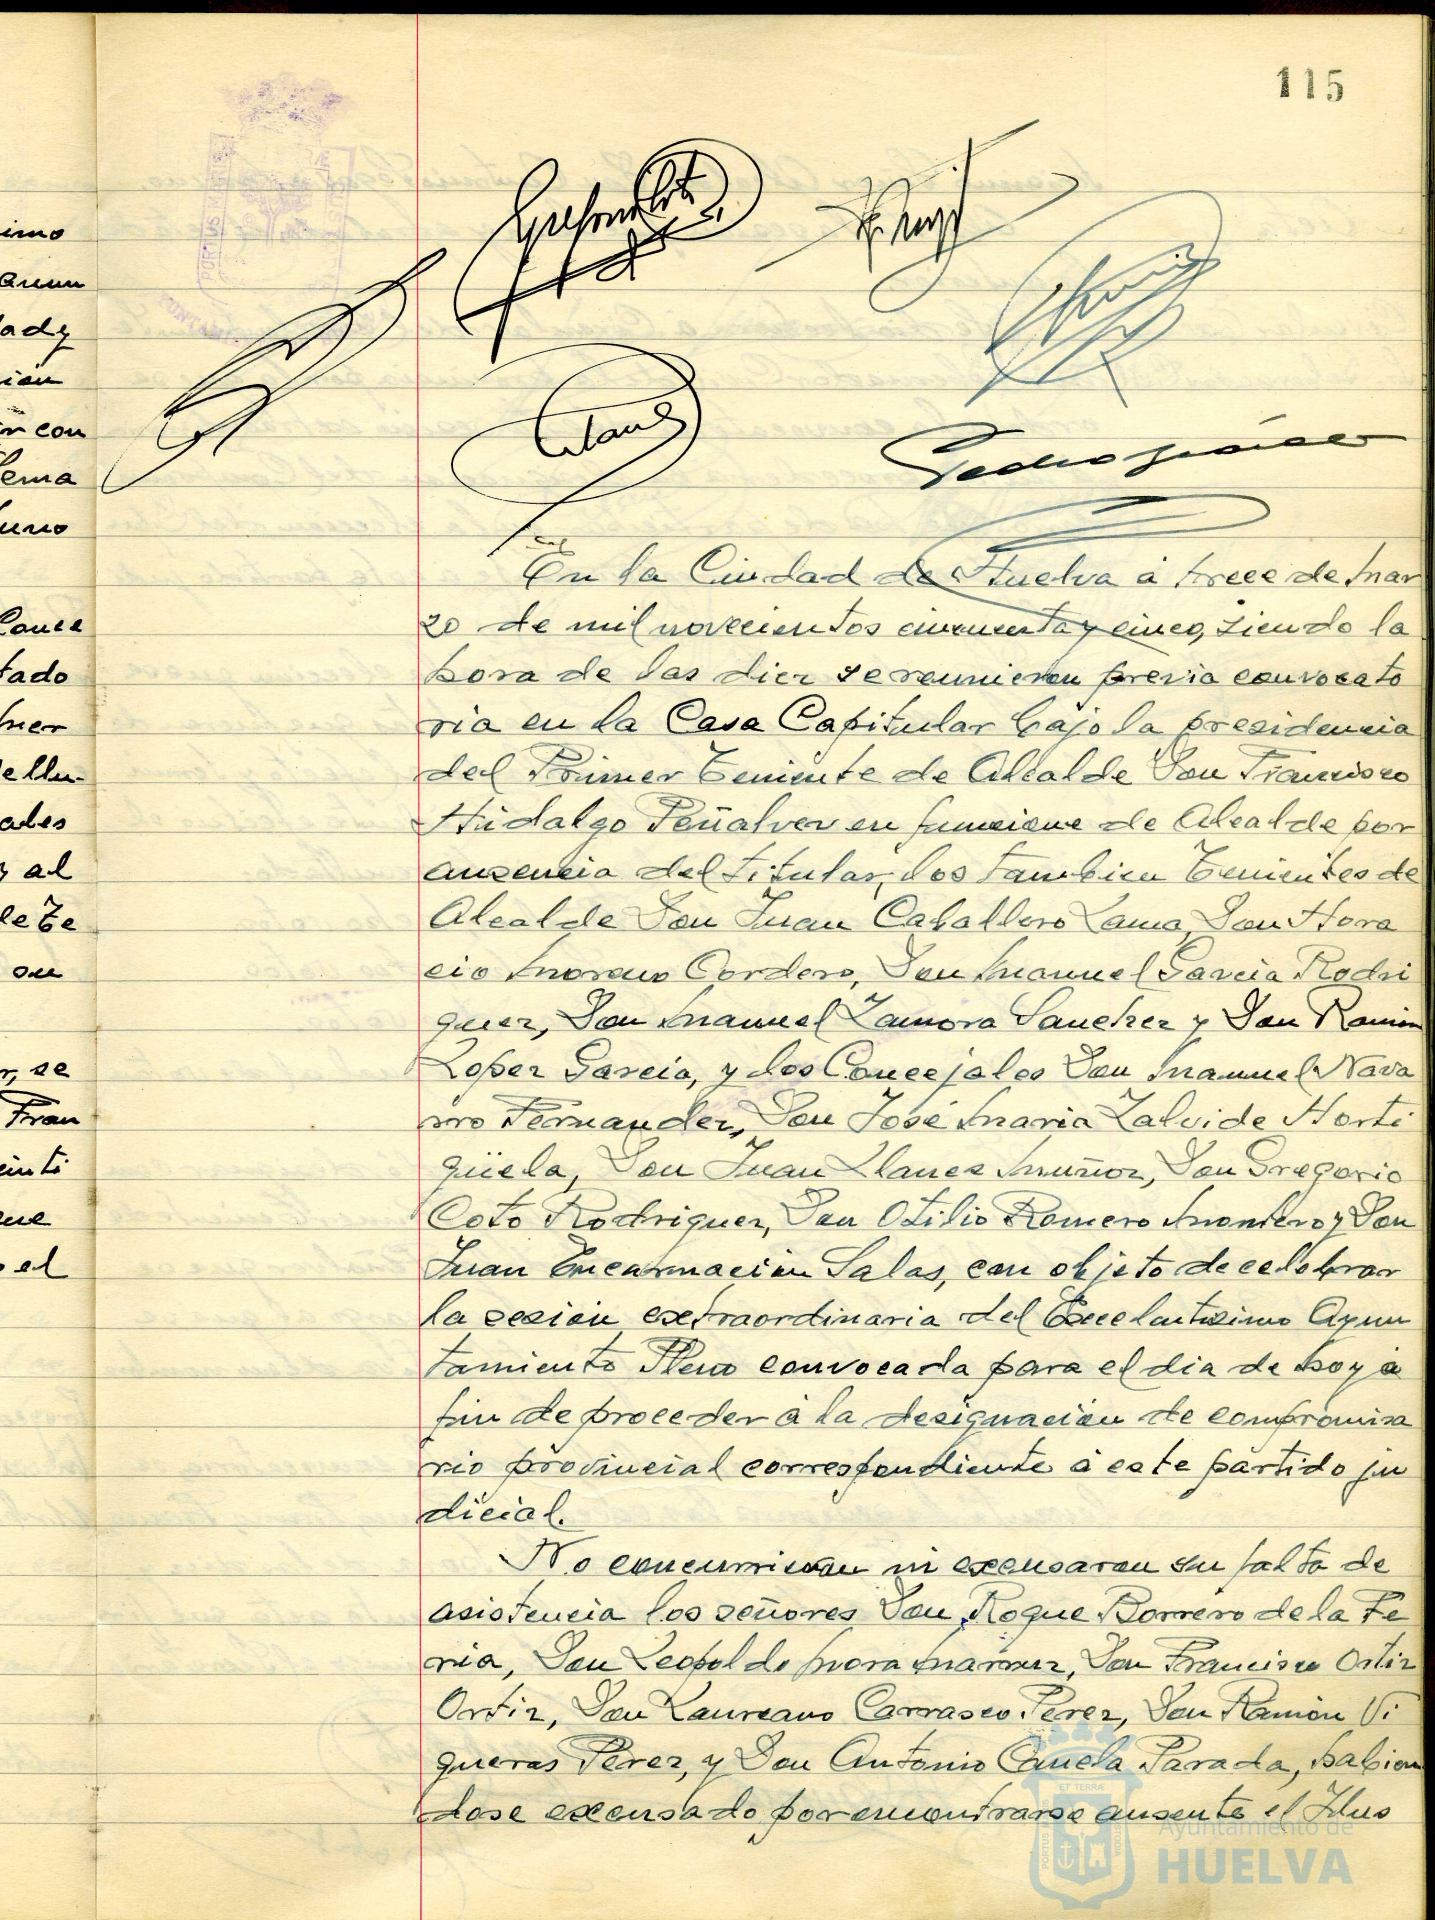 115
imo
lady
ción
con
lema
tado
ales
y al
de Te
su
r, se
Fran
el
Pedro
En la Ciudad de Huelva á trece de mar
zo de mil novecientos cincuenta y cinco, siendo la
hora de las diez se reunieron previa convocato
ria en la Casa Capitular bajo la presidencia
del Primer Teniente de Alcalde Don Francisco
Hidalgo Peñalver en funcione de Alcalde por
ausencia del titular, los tambien Tenientes de
Alcalde Don Juan Caballero Lama, Don Hora
cio Moreno Cordero, Don Manuel Garcia Rodri
guez, Don Manuel Zamora Sanchez y Don Ramón
Lopez Garcia, y los Concejales Don Manuel Nava
rro Fernandez, Don José Maria Zalvide Horti
güela, Don Juan Llanes Muñoz, Don Gregorio
Coto Rodriguez, Don Otilio Romero Momiero y Don
Juan Encarnación Salas, con objeto de celebrar
la sesión extraordinaria del Excelentisimo Ayun
tamiento Pleno convocada para el dia de hoy á
fin de proceder á la designación de compromisa
rio provincial correspondiente á este partido ju
dicial.
No concurrieron ni excusaron su falta de
asistencia los señores Don Roque Borrero de la Fe
ria, Don Leopoldo Mora Don Francisco Ortiz
Ortiz, Don Laureano Carrasco Perez, Don Ramón Vi
gueras Perez, y Don Antonio Canela Parada, habien
dose excusado por encontrarse ausente el Ilus
PORTUS MARIS
ET TERRÆ
CUSTODIA
Ayuntamiento de
HUELVA